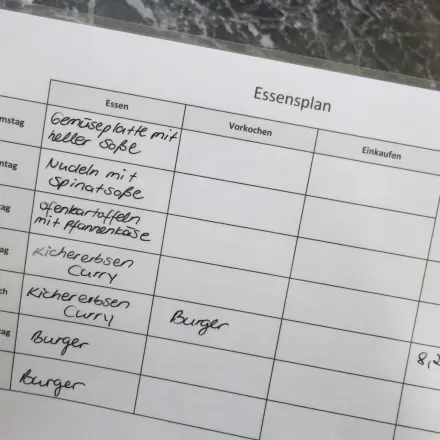 Essensplan
Essen
Vorkochen
Einkaufen
mstag
Gemüseplatte mit
heller Soße
ntag
Nudeln mit
Spinatsoße
tag
Ofenkartoffeln
mit Pfannenkäse
ag
Kichererbsen
Curry
ch
Kichererbsen
Curry
Burger
tag
Burger
8,2
Burger